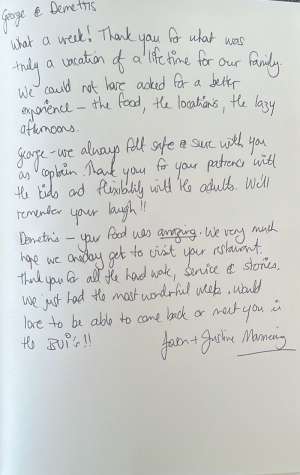 George & Demetris
What a week! Thank you for what was
truly a vacation of a lifetime for our family.
We could not have asked for a better
experience – the food, the locations, the lazy
afternoons.
George – we always felt safe & sure with you
as captain. Thank you for your patience with
the kids and flexibility with the adults. Will
remember your laugh!!
Demetris – your food was amazing. We very much
hope we oneday get to visit your restaurant.
Thank you for all the hard work, service & stories.
We just had the most wonderful week. Would
love to be able to come back or meet you in
the BVI's!!
Jason + Justine Manning